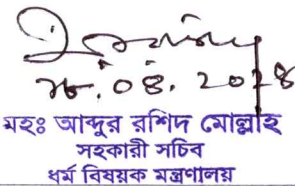 ২৮.০৪.২০২৪
মহঃ আব্দুর রশিদ মোল্লাহ
সহকারী সচিব
ধর্ম বিষয়ক মন্ত্রণালয়